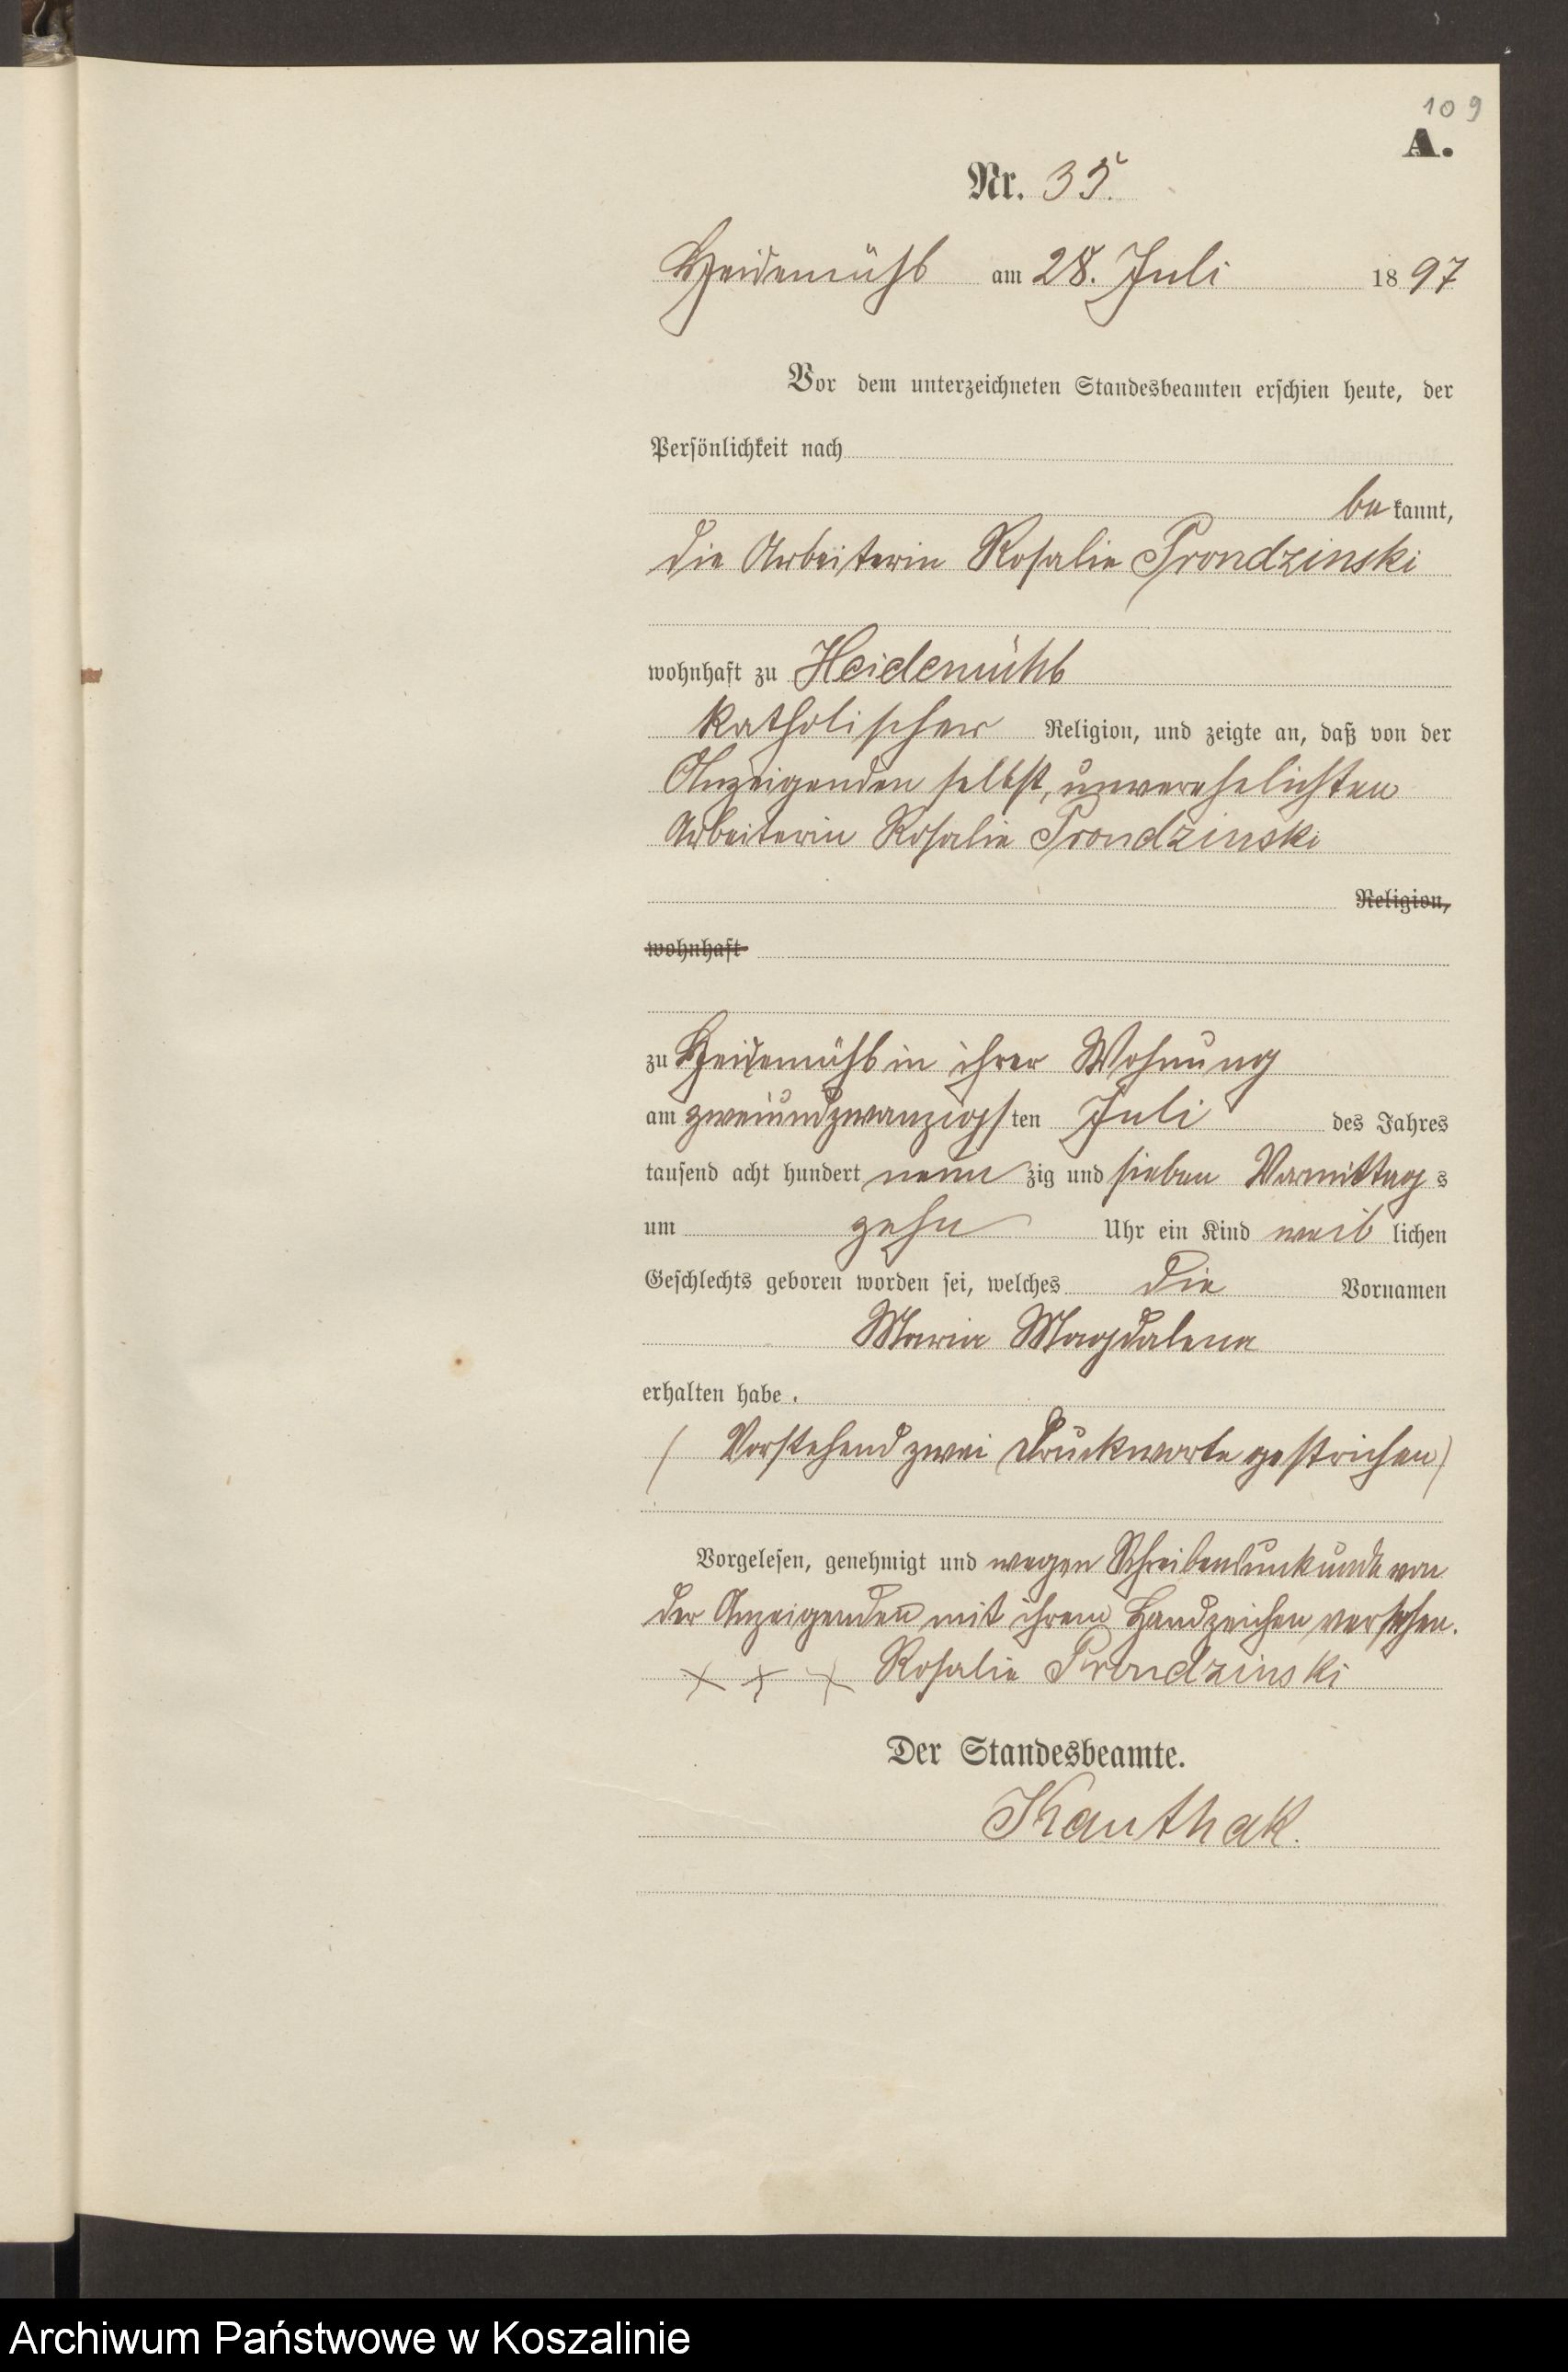 109
A.
Nr. 35.
Heidemühl am 28. Juli 1897
Vor dem unterzeichneten Standesbeamten erschien heute, der
Persönlichkeit nach
be kannt,
die Arbeiterin Rosalie Prondzinski
wohnhaft zu Heidemühl
katholischer Religion, und zeigte an, daß von der
Anzeigenden selbst, unverehelichten
Arbeiterin Rosalie Prondzinski
Religion,
wohnhaft
zu Heidemühl in ihrer Wohnung
am zweiundzwanzigsten Juli des Jahres
tausend acht hundert neun zig und sieben Vormittag s
um zehn Uhr ein Kind weib lichen
Geschlechts geboren worden sei, welches die Vornamen
Maria Magdalena
erhalten habe.
(Vorstehend zwei Druckworte gestrichen)
Vorgelesen, genehmigt und wegen Schreibensunkunde von
der Anzeigenden mit ihrem Handzeichen versehen.
x x x Rosalie Prondzinski
Der Standesbeamte.
Kauthak.
Archiwum Państwowe w Koszalinie